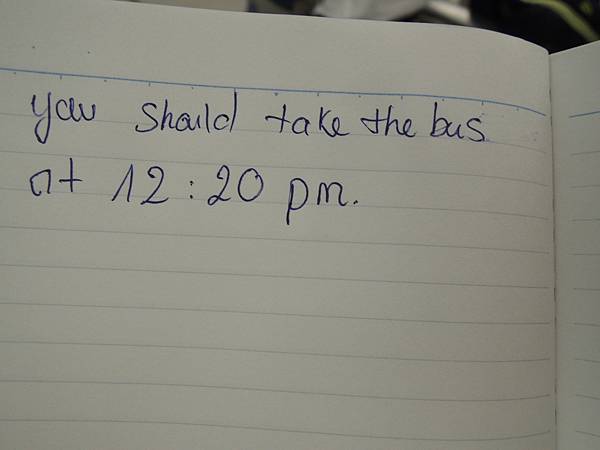 you should take the bus
at 12:20 pm.